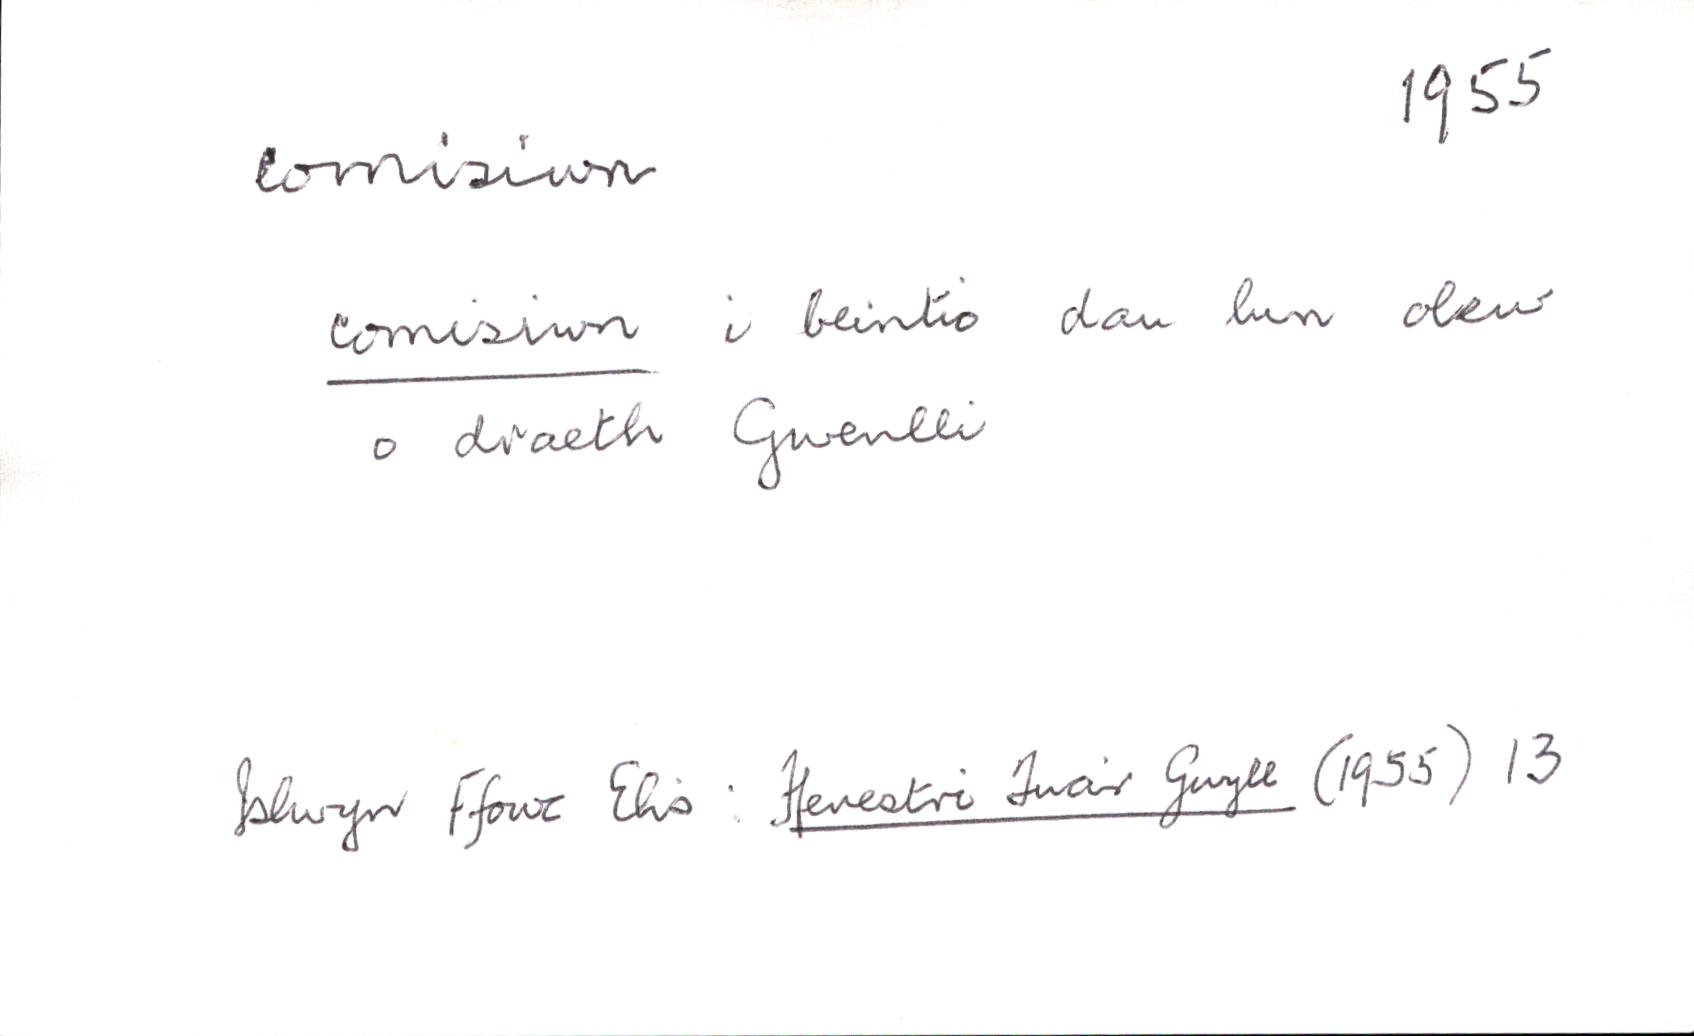 1955
comisiwn
comisiwn i beintio dau lun olew
o draeth Gwenlli
Islwyn Ffowc Elis : Ffenestri Tua'r Gwyll (1955) 13